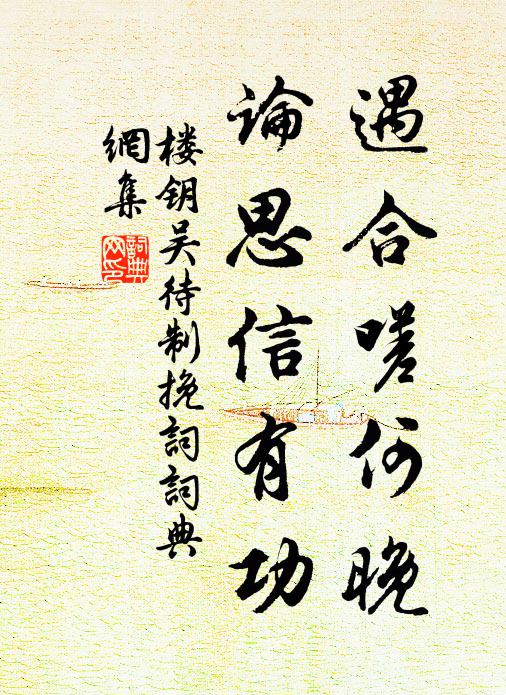 遇合嗟何晚
論思信有功
楼钥吴待制挽詞詞典
網集
詞典
网印